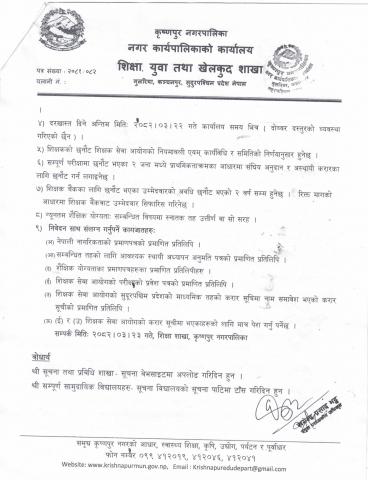 कृष्णपुर नगरपालिका
नगर कार्यपालिकाको कार्यालय
शिक्षा, युवा तथा खेलकुद शाखा
गुलरिया, कञ्चनपुर, सुदूरपश्चिम प्रदेश नेपाल
पत्र संख्या :-२०८१-०८२
चलानी नं. :
।
४) दरखास्त दिने अन्तिम मितिः २०८२।०३।२२ गते कार्यालय समय भित्र । दोब्बर दस्तुरको व्यवस्था
गरिएको छैन) ।
५) शिक्षकको छनौट शिक्षक सेवा आयोगको नियमावली एवम् कार्यविधि र समितिको निर्णयानुसार हुनेछ ।
६) सम्पूर्ण परीक्षामा छनौट भएका २ जना मध्ये प्राथमिकताक्रमका आधारमा संघिय अनुदान र अस्थायी करारका
लागि छनौट गर्न लगाइनेछ ।
७) शिक्षक बैंकका लागि छनौट भएका उम्मेदवारको अवधि छनौट भएको २ वर्ष सम्म हुनेछ । रिक्त मागको
आधारमा शिक्षक बैंकबाट उम्मेदवार सिफारिस गरिनेछ ।
८) न्यूनतम शैक्षिक योग्यताः सम्बन्धित विषयमा स्नातक तह उत्तीर्ण वा सो सरह ।
९) निवेदन साथ संलग्न गर्नुपर्ने कागजातहरूः
(अ) नेपाली नागरिकताको प्रमाणपत्रको प्रमाणित प्रतिलिपि ।
(आ) सम्बन्धित तहको लागि आवश्यक स्थायी अध्यापन अनुमति पत्रको प्रमाणित प्रतिलिपि ।
(इ) शैक्षिक योग्यताका प्रमाणपत्रहरुका प्रमाणित प्रतिलिपीहरु ।
(ई) शिक्षक सेवा आयोगको परीक्षाको प्रवेश पत्रको प्रमाणित प्रतिलिपि ।
(उ) शिक्षक सेवा आयोगको सुदूरपश्चिम प्रदेशको माध्यमिक तहको करार सूचिमा नाम समावेश भएको करार
सूचीको प्रमाणित प्रतिलिपि ।
(ई) र (उ) शिक्षक सेवा आयोगको करार सूचीमा भएकाहरुको लागि मात्र पेश गर्नु पर्नेछ ।
सम्पर्क मितिः २०८२।०३।२३ गते, शिक्षा शाखा, कृष्णपुर नगरपालिका
बोधार्थ
श्री सूचना तथा प्रविधि शाखा:- सूचना वेभसाइटमा अपलोड गरिदिन हुन ।
श्री सम्पूर्ण सामुदायिक विद्यालयहरु:- सूचना विद्यालयको सूचना पाटिमा टाँस गरिदिन हुन ।
समृद्ध कृष्णपुर नगरको आधार, स्वास्थ्य शिक्षा, कृषि, उद्योग, पर्यटन र पूर्वाधार
फोन नम्बरः ०९९ ४१२०१९, ४१२०४६, ४१२०४१
Website: www.krishnapurmun.gov.np, Email : Krishnapuredudepart@gmail.com